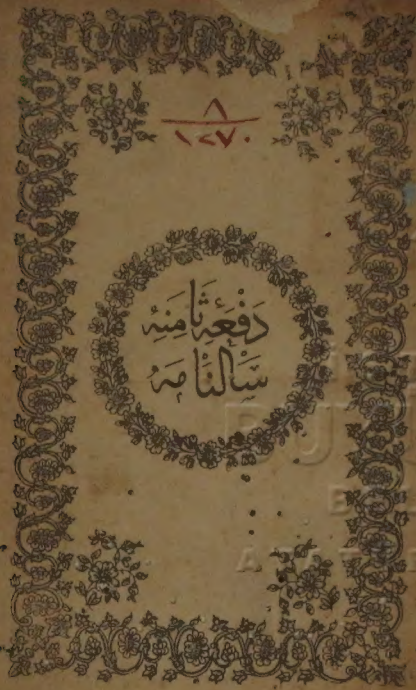 ٨
١٢٧٠
دَفْعَهِٔ ثَامِنَهِ
سَالْنَامَهٔ